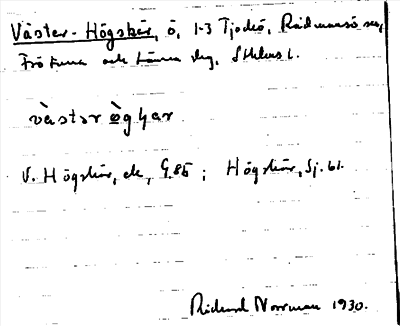 Väster-Högskär, ö, 1-3 Tjockö, Rådmansö sn,
Frötuna och Länna skg, Sthlms l.
västər ògʂar
V. Högskär, ek, G.85; Högskär, Sj. 61.
Rickard Norrman 1930.